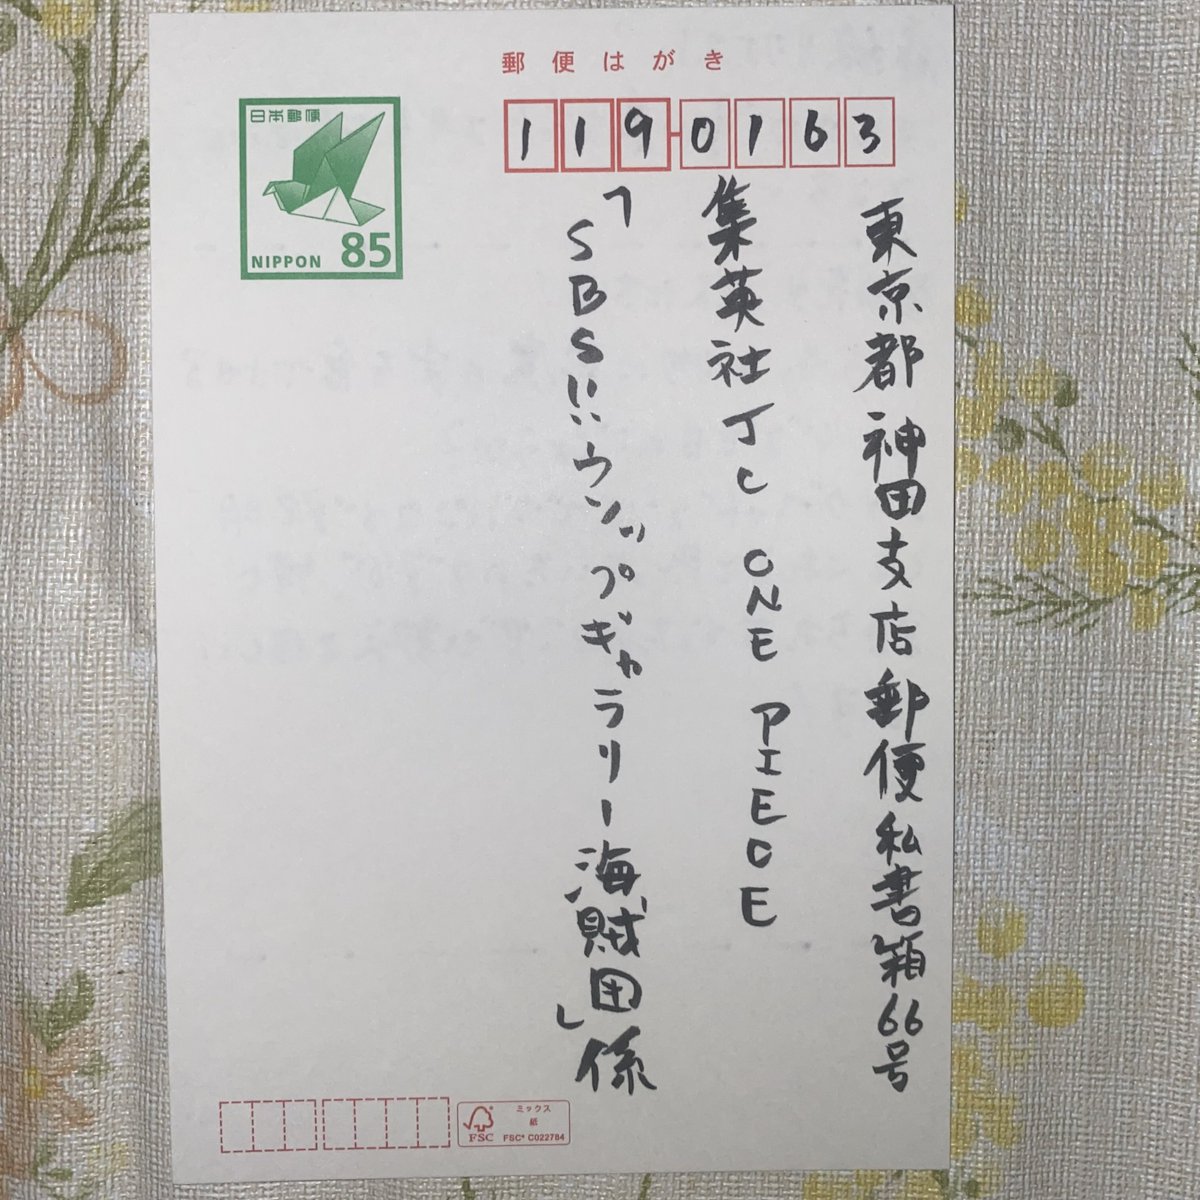 郵便はがき
日本郵便
NIPPON 85
119-0163
東京都神田支店郵便私書箱66号
集英社JC ONE PIECE
「SBS!!ウソップギャラリー海賊団」係
ミックス
紙
FSC
FSC® C022784